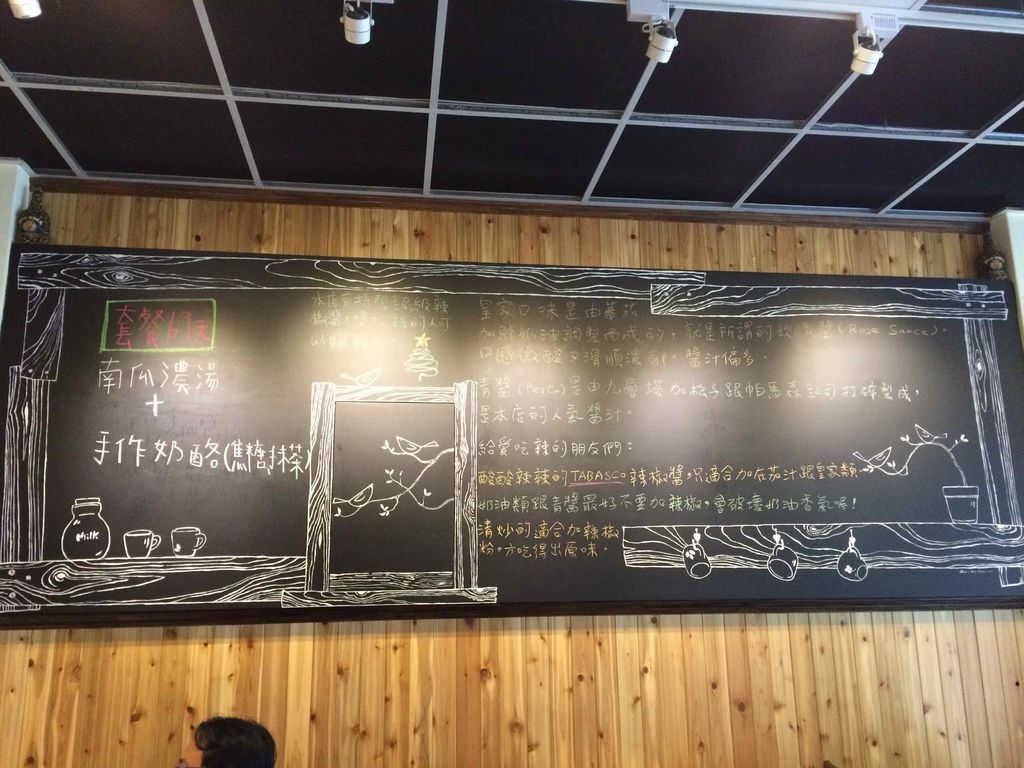 套餐69元
南瓜濃湯
+
手作奶酪(焦糖,抹茶)
Milk
本店有特製超級辣
椒醬,嗜吃辣的人可
以
皇家口味是由蕃茄
加鮮奶油調製而成的,就是所謂的玫瑰醬(Rose Sauce)。
口感微酸又滑順濃郁,醬汁偏多。
青醬(Pesto)是由九層塔加松子跟帕馬森起司打碎製成,
是本店的人氣醬汁。
給愛吃辣的朋友們:
酸酸辣辣的TABASCO辣椒醬只適合加在茄汁跟皇家類
奶油類跟青醬最好不要加辣椒,會破壞奶油香氣喔!
清炒的適合加辣椒
粉,才吃得出原味。